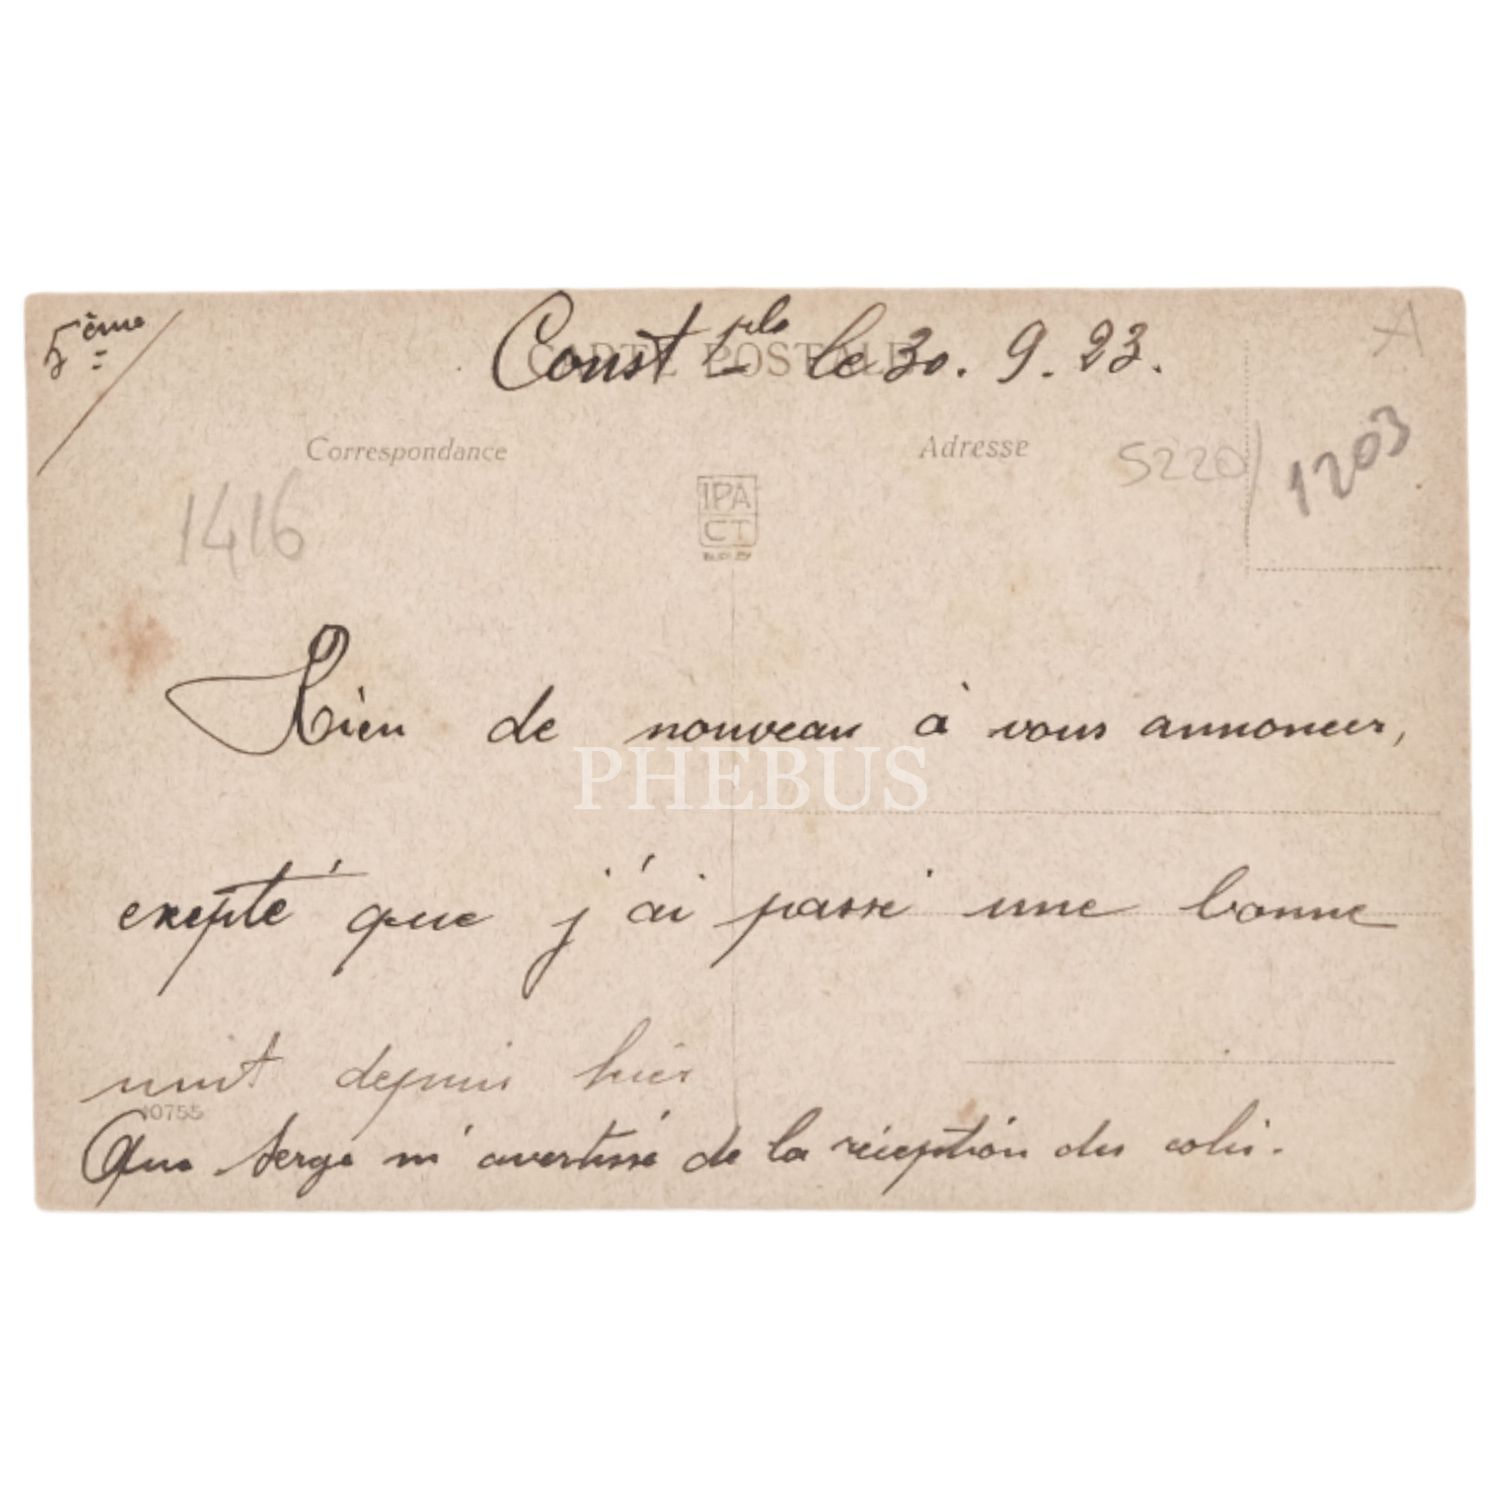 5ème
Const-ple le 30.9.23.
A
CARTE POSTALE
Correspondance
Adresse
5220/
1203
1416
IPA
CT
Rien de nouveau à vous annoncer,
PHEBUS
exepté que j'ai passé une bonne
nuit depuis hier
10755
Que Serge m'avertisse de la réception du colis.